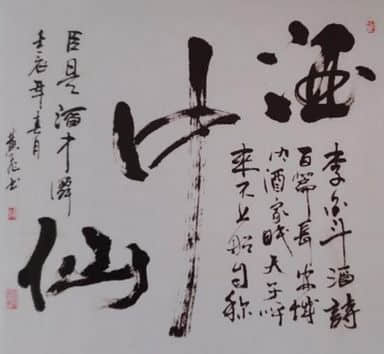 酒中仙
李白斗酒詩
百篇長安城
内酒家眠天子呼
来不上船自称
臣是酒中僊
壬辰年春月